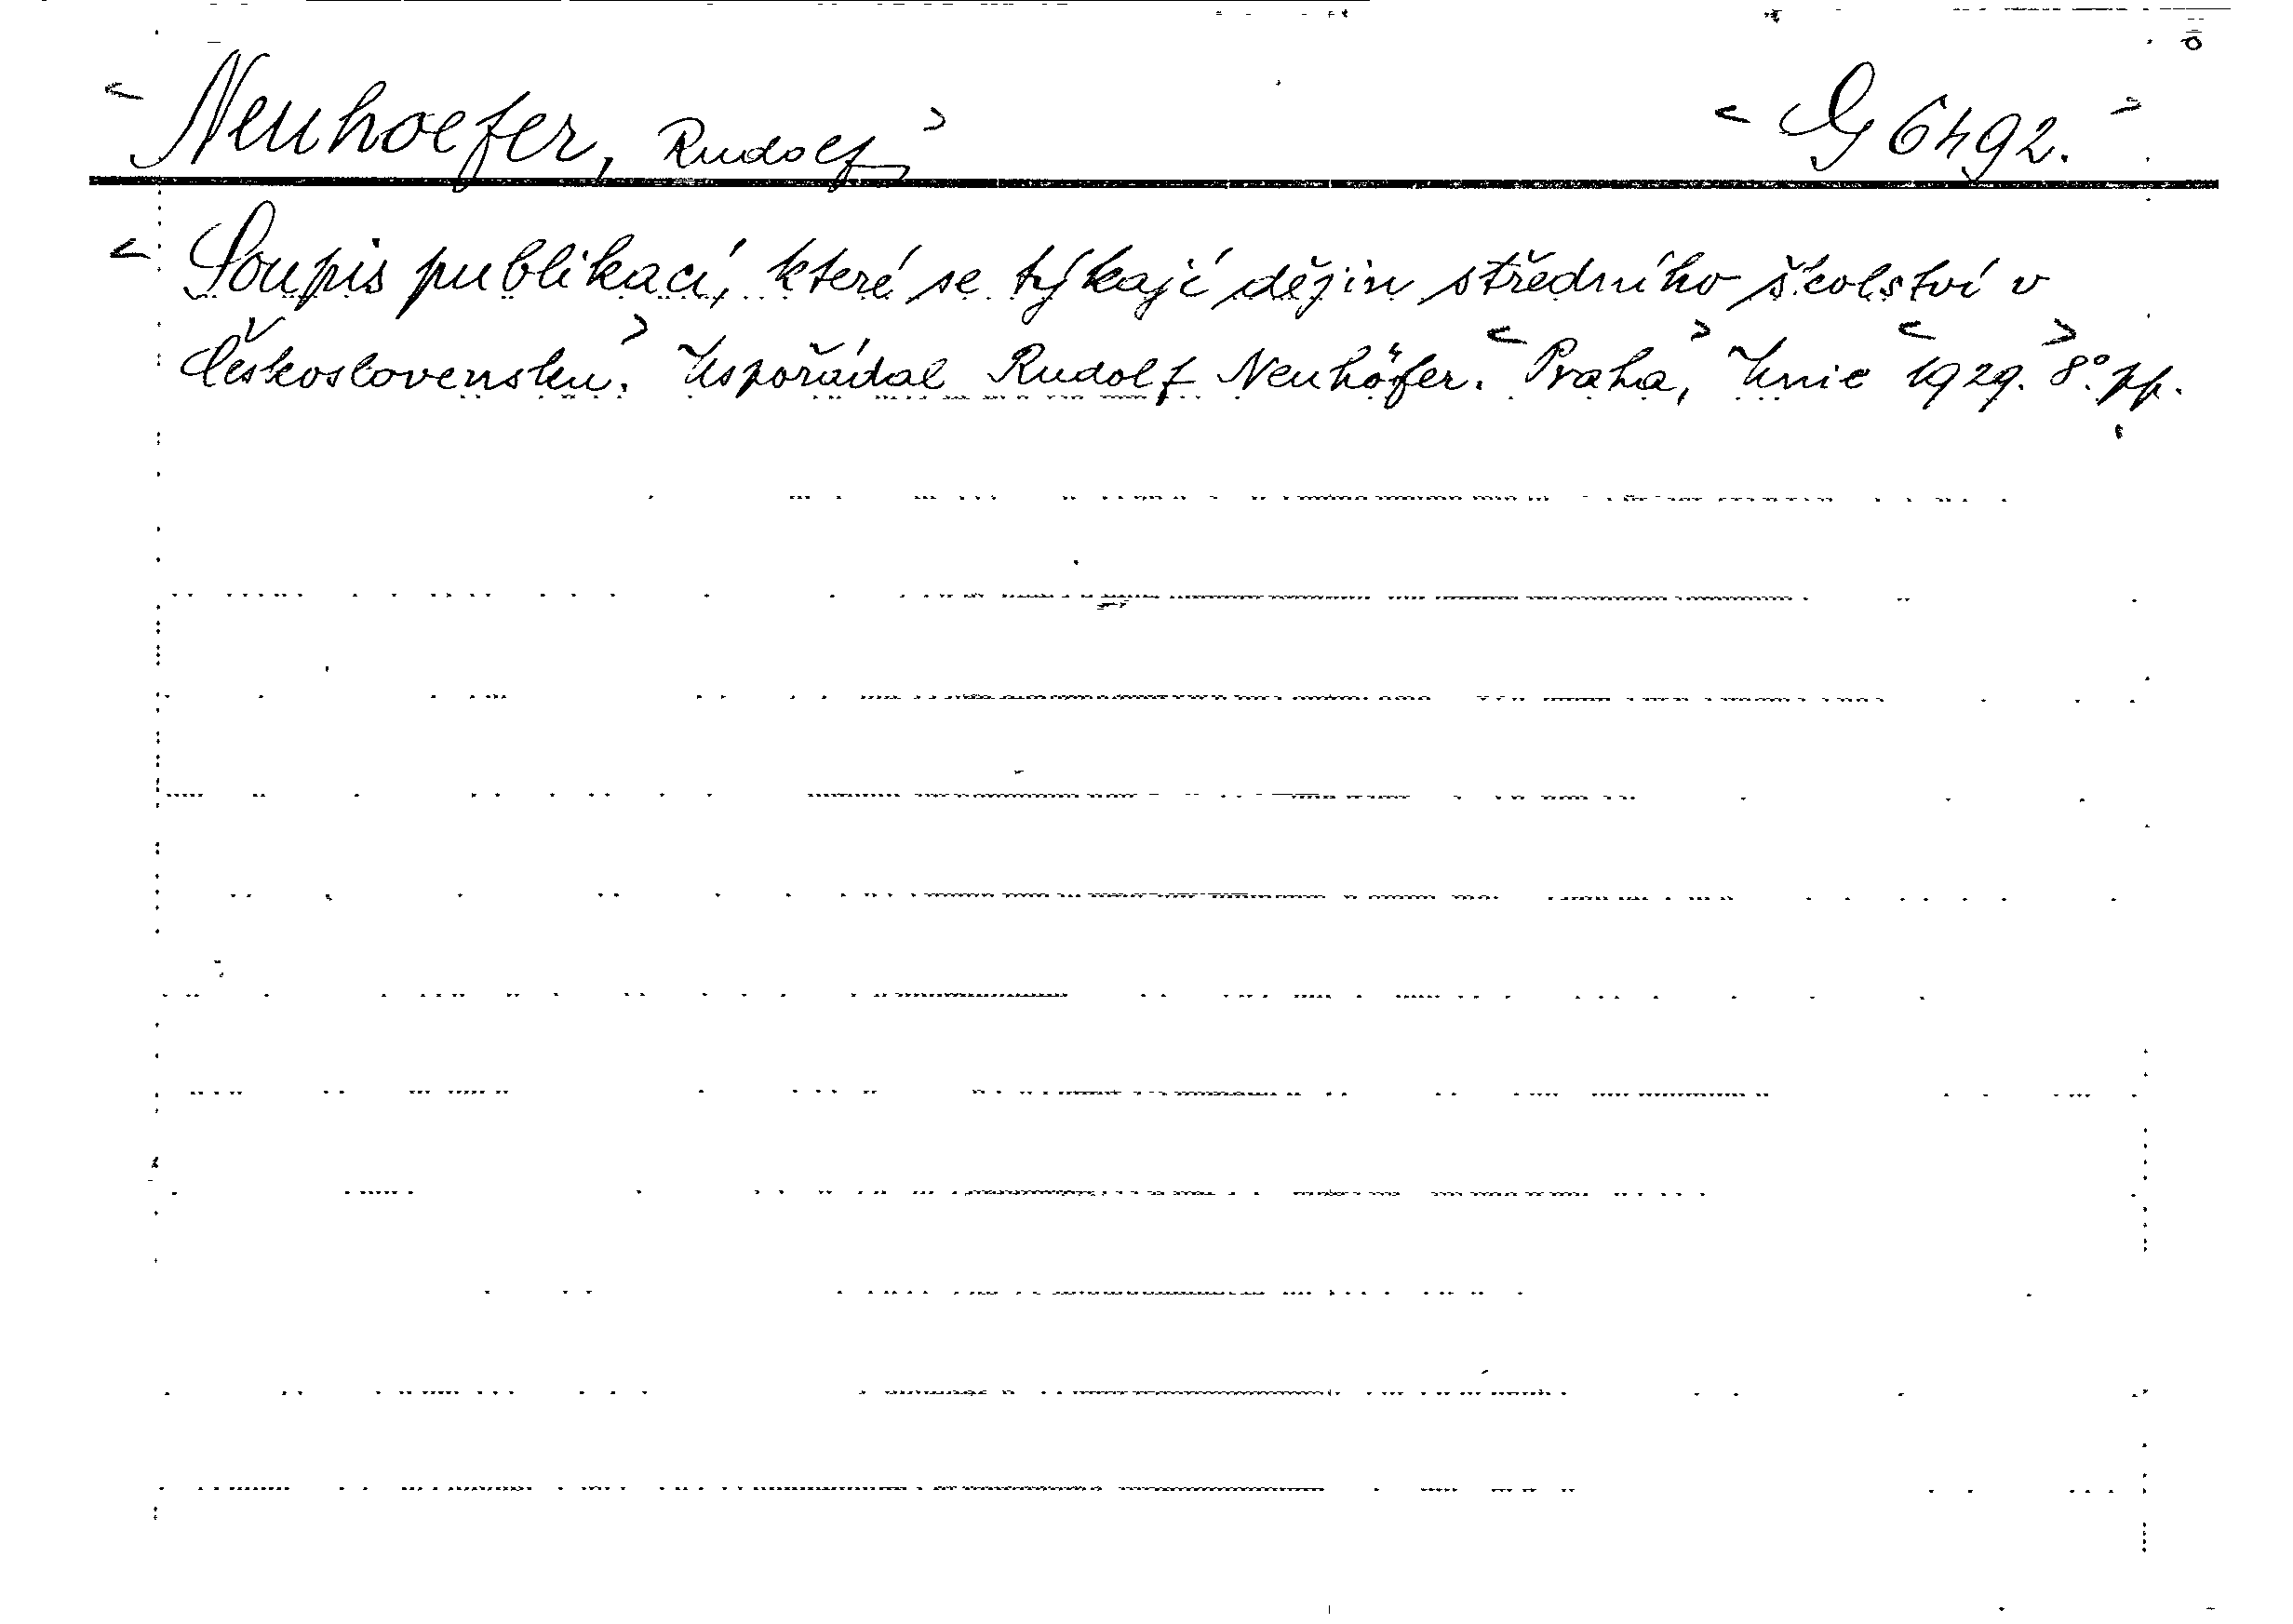 <Neuhoefer, Rudolf> <G 6492.>
<Soupis publikací, které se týkají dějin středního školství v
Československu.> Uspořádal Rudolf Neuhöfer. <Praha,> Unie <1929.> 8°. pp.